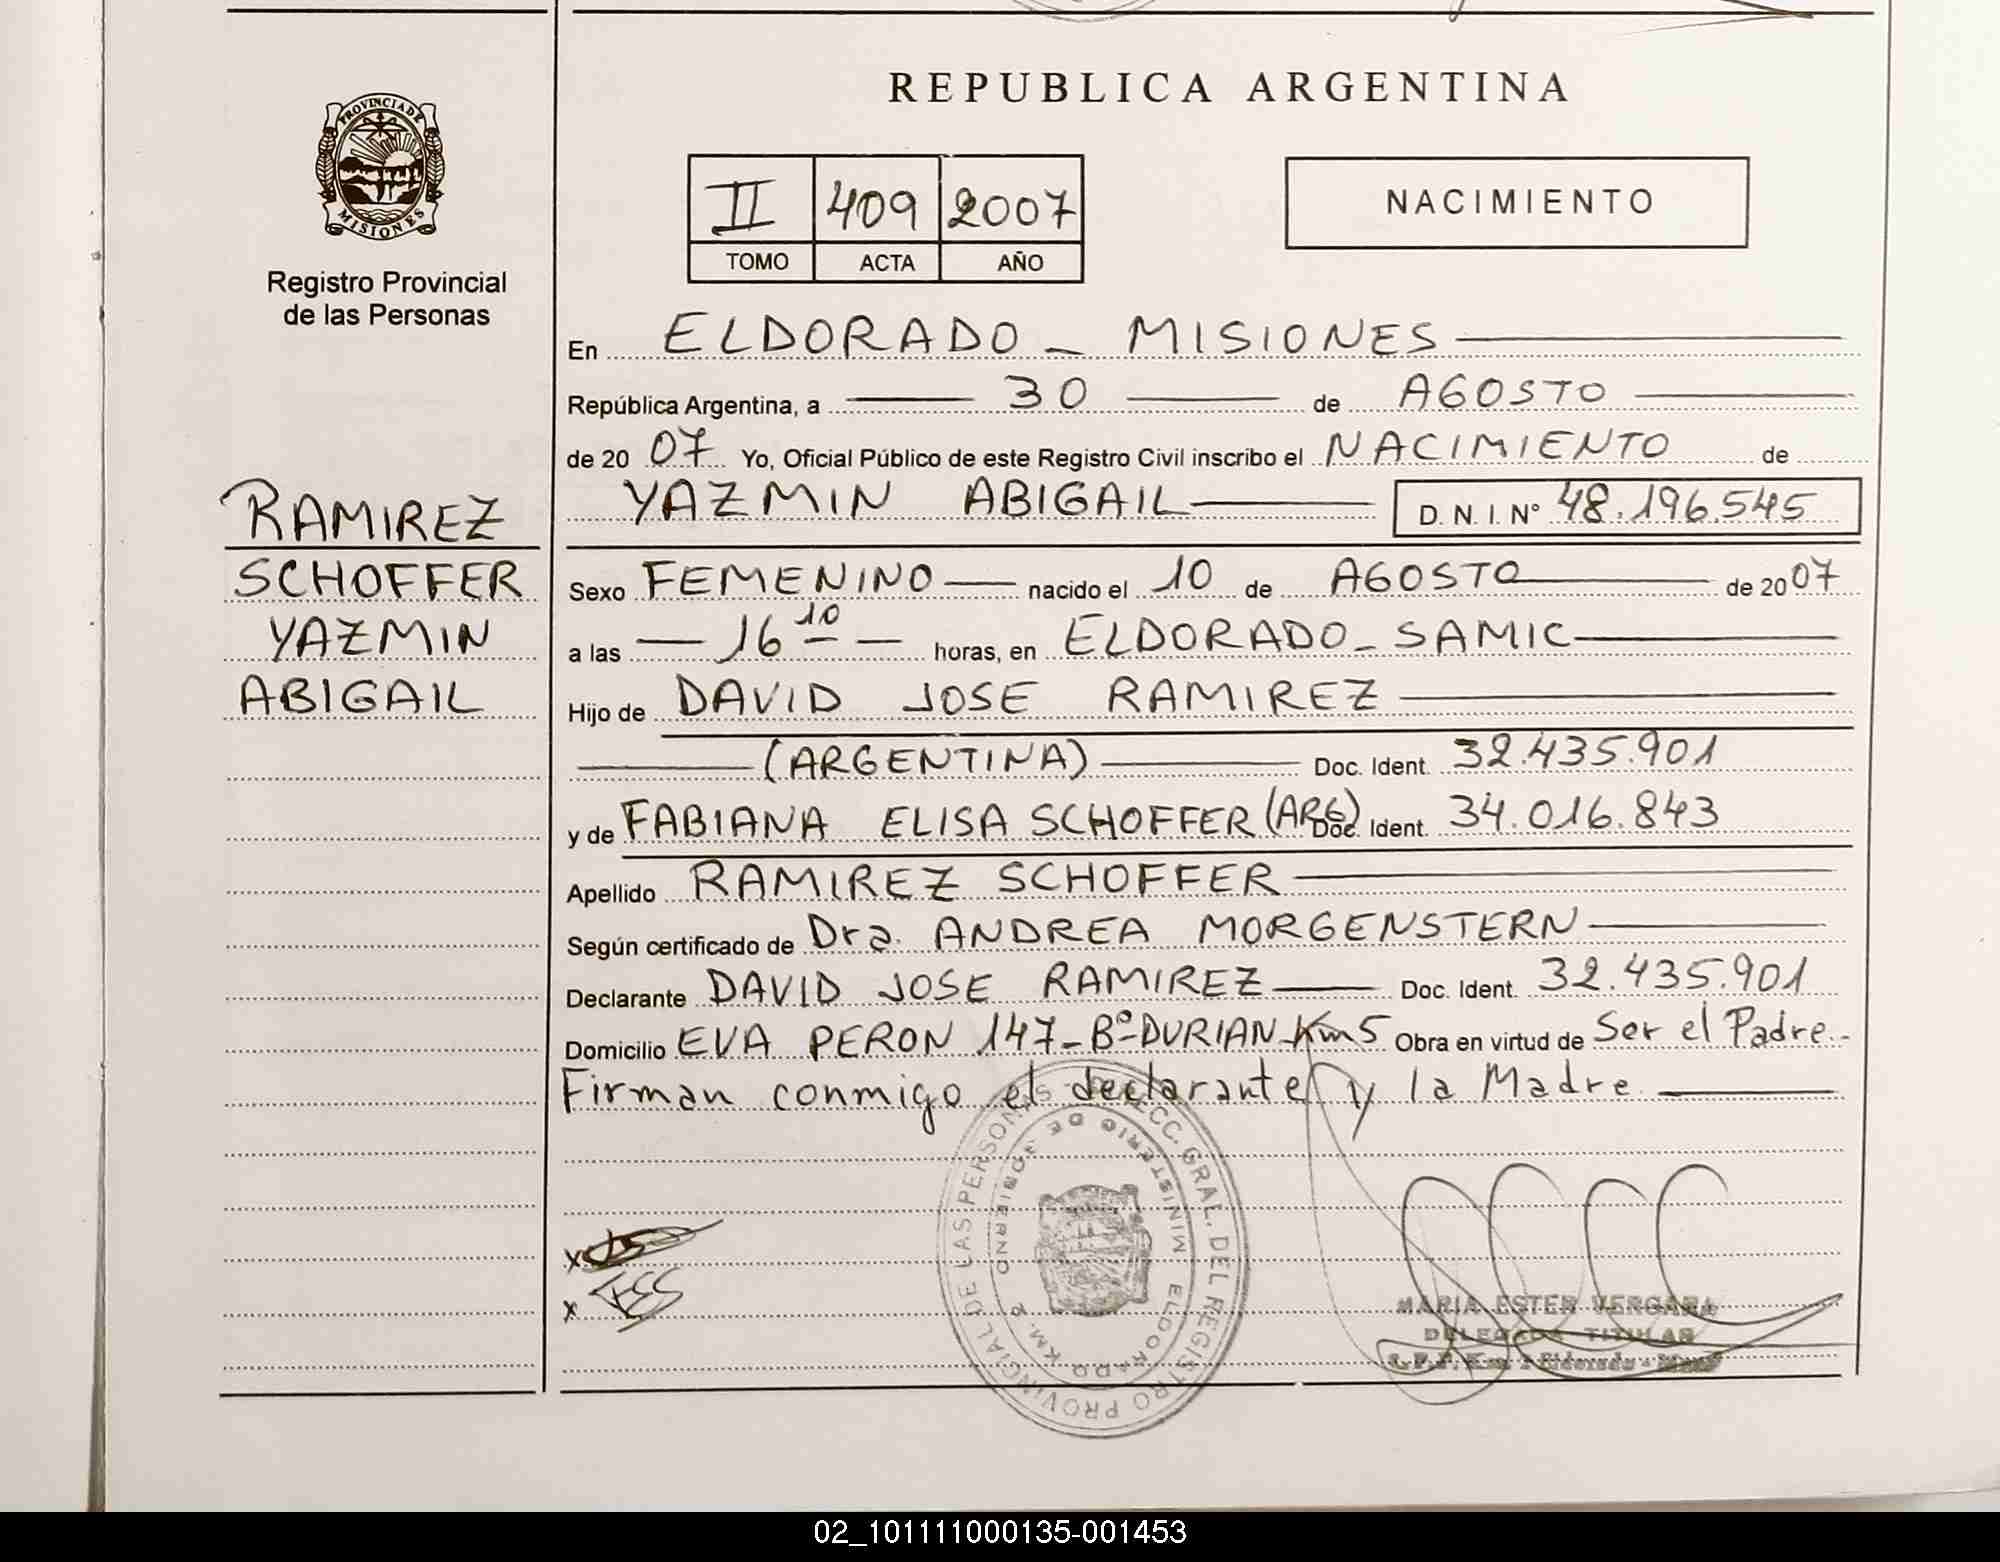 REPUBLICA ARGENTINA
PROVINCIA DE
MISIONES
Registro Provincial
de las Personas
II 409 2007
TOMO ACTA AÑO
NACIMIENTO
RAMIREZ
SCHOFFER
YAZMIN
ABIGAIL
En ELDORADO - MISIONES
República Argentina, a 30 de AGOSTO
de 20 07 Yo, Oficial Público de este Registro Civil inscribo el NACIMIENTO de
YAZMIN ABIGAIL D. N. I. N° 48.196.545
Sexo FEMENINO nacido el 10 de AGOSTO de 20 07
a las 16 10 horas, en ELDORADO - SAMIC
Hijo de DAVID JOSE RAMIREZ
(ARGENTINA) Doc. Ident. 32.435.901
y de FABIANA ELISA SCHOFFER (ARG) Doc. Ident. 34.016.843
Apellido RAMIREZ SCHOFFER
Según certificado de Dra. ANDREA MORGENSTERN
Declarante DAVID JOSE RAMIREZ Doc. Ident. 32.435.901
Domicilio EVA PERON 147 - Bº DURIAN - Km 5 Obra en virtud de Ser el Padre.-
Firman conmigo el declarante y la Madre.
DIRECC. GRAL. DEL REGISTRO PROVINCIAL DE LAS PERSONAS
MINISTERIO DE GOBIERNO
ELDORADO KM. 2
x
x FES
MARIA ESTER VERGARA
DELEGADA TITULAR
Km. 2 Eldorado - Mnes
02_101111000135-001453